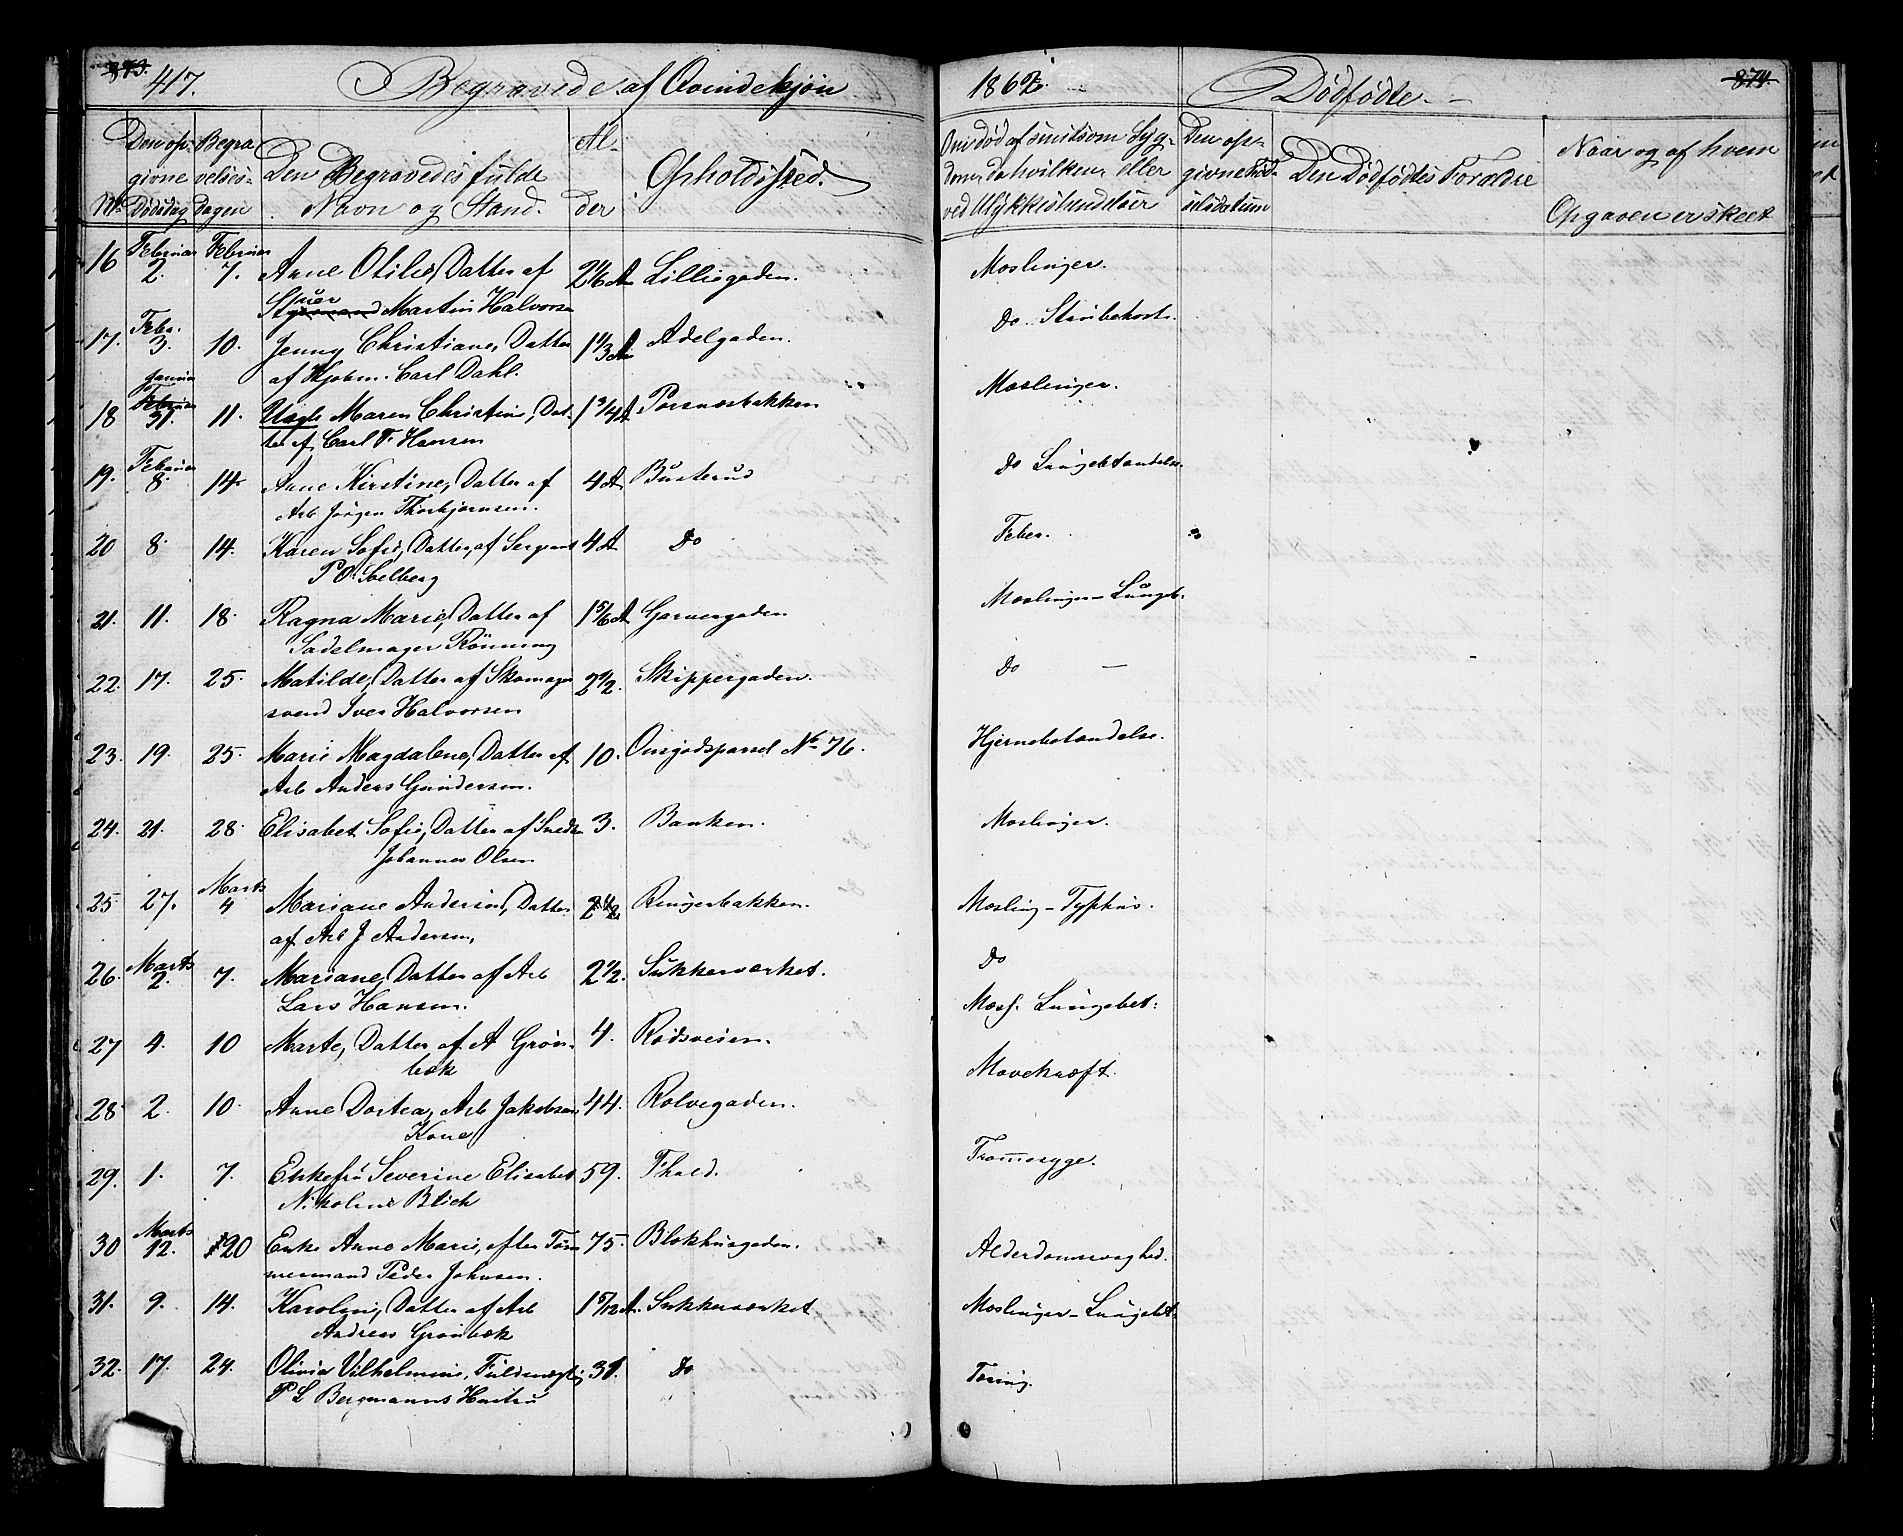 873. 417. Begravede af Qvindekjøn 1862. Dødfødte. 874.
No Den opgivne Dødsdag Begravelsesdagen Den Begravedes fulde Navn og Stand. Alder Opholdssted. Om død af smitsom Sygdom, da hvilken, eller ved Ulykkeshændelser Den opgivne Fødselsdatum Den Dødfødtes Forældre Naar og af hvem Opgaven er skeet
16 Februar 2. Februar 7. Anne Otilie, Datter af 2 1/6 A Lilliegaden. Meslinger.
Stuer Martin Halvorsen
17. Febr. 3. 10. Jenny Christiane, Datter 1 1/3 A Adelgaden. Do Strubehoste
af Kjøbm. Carl Dahl.
18 Januar 31. 11. Uægte Maren Christine, Dat- 1 3/4 A Porsnæsbakken Meslinger.
ter af Carl F. Hansen
19. Februar 8. 14. Anne Kirstine, Datter af 4 A Busterud Do Lungebetændelse.
Arb Jørgen Thorbjørnsen.
20 8. 14. Karen Sofie, Datter af Sergeant 4 A Do Feber.
P O Solberg
21. 11. 18. Ragna Marie, Datter af 1 5/6 A Garvergaden Meslinger-Lungeb.
Sadelmager Rönning
22. 17. 25. Matilde, Datter af Skomager 2 1/2. Skippergaden. Do
svend Iver Halvorsen
23. 19. 25. Marie Magdalene, Datter af 10. Ousjødsparsel No 76. Hjernebetændelse.
Arb Anders Gundersen.
24. 21. 28. Elisabet Sofie, Datter af Snedker 3. Banken. Meslinger.
Johannes Olsen
25 27. Marts 4 Mariane Andersine, Datter 2 1/2 Ringerbakken. Mesling-Typhus.
af Arb J Andersen,
26. Marts 2. 7. Mariane, Datter af Arb 2 1/2. Sukkerværket. Do
Lars Hansen.
27 4. 10 Marte, Datter af A Grøn- 4. Rødsveien. Mesl. Lungebet:
bæk
28 2. 10. Anne Dortea, Arb Jakobsens 44. Rolvsgaden. Mavekræft.
Kone
29. 1. 7. Enkefru Severine Elisabet 59. Fhald. Tromsyge.
Nikoline Blick
30 Marts 12. 20 Enke Anne Marie, efter Töm- 75. Blokhusgaden. Alderdomsvaghed.
mermand Peder Johnsen.
31. 9. 14. Karoline, Datter af Arb 1 5/12 A. Sukkerværket Meslinger-Lungebet
Andreas Grønbæk
32. 17. 24. Olivia Vilhelmine, Fuldmægtig 31. Do Tæring.
P L Bergmanns Hustru